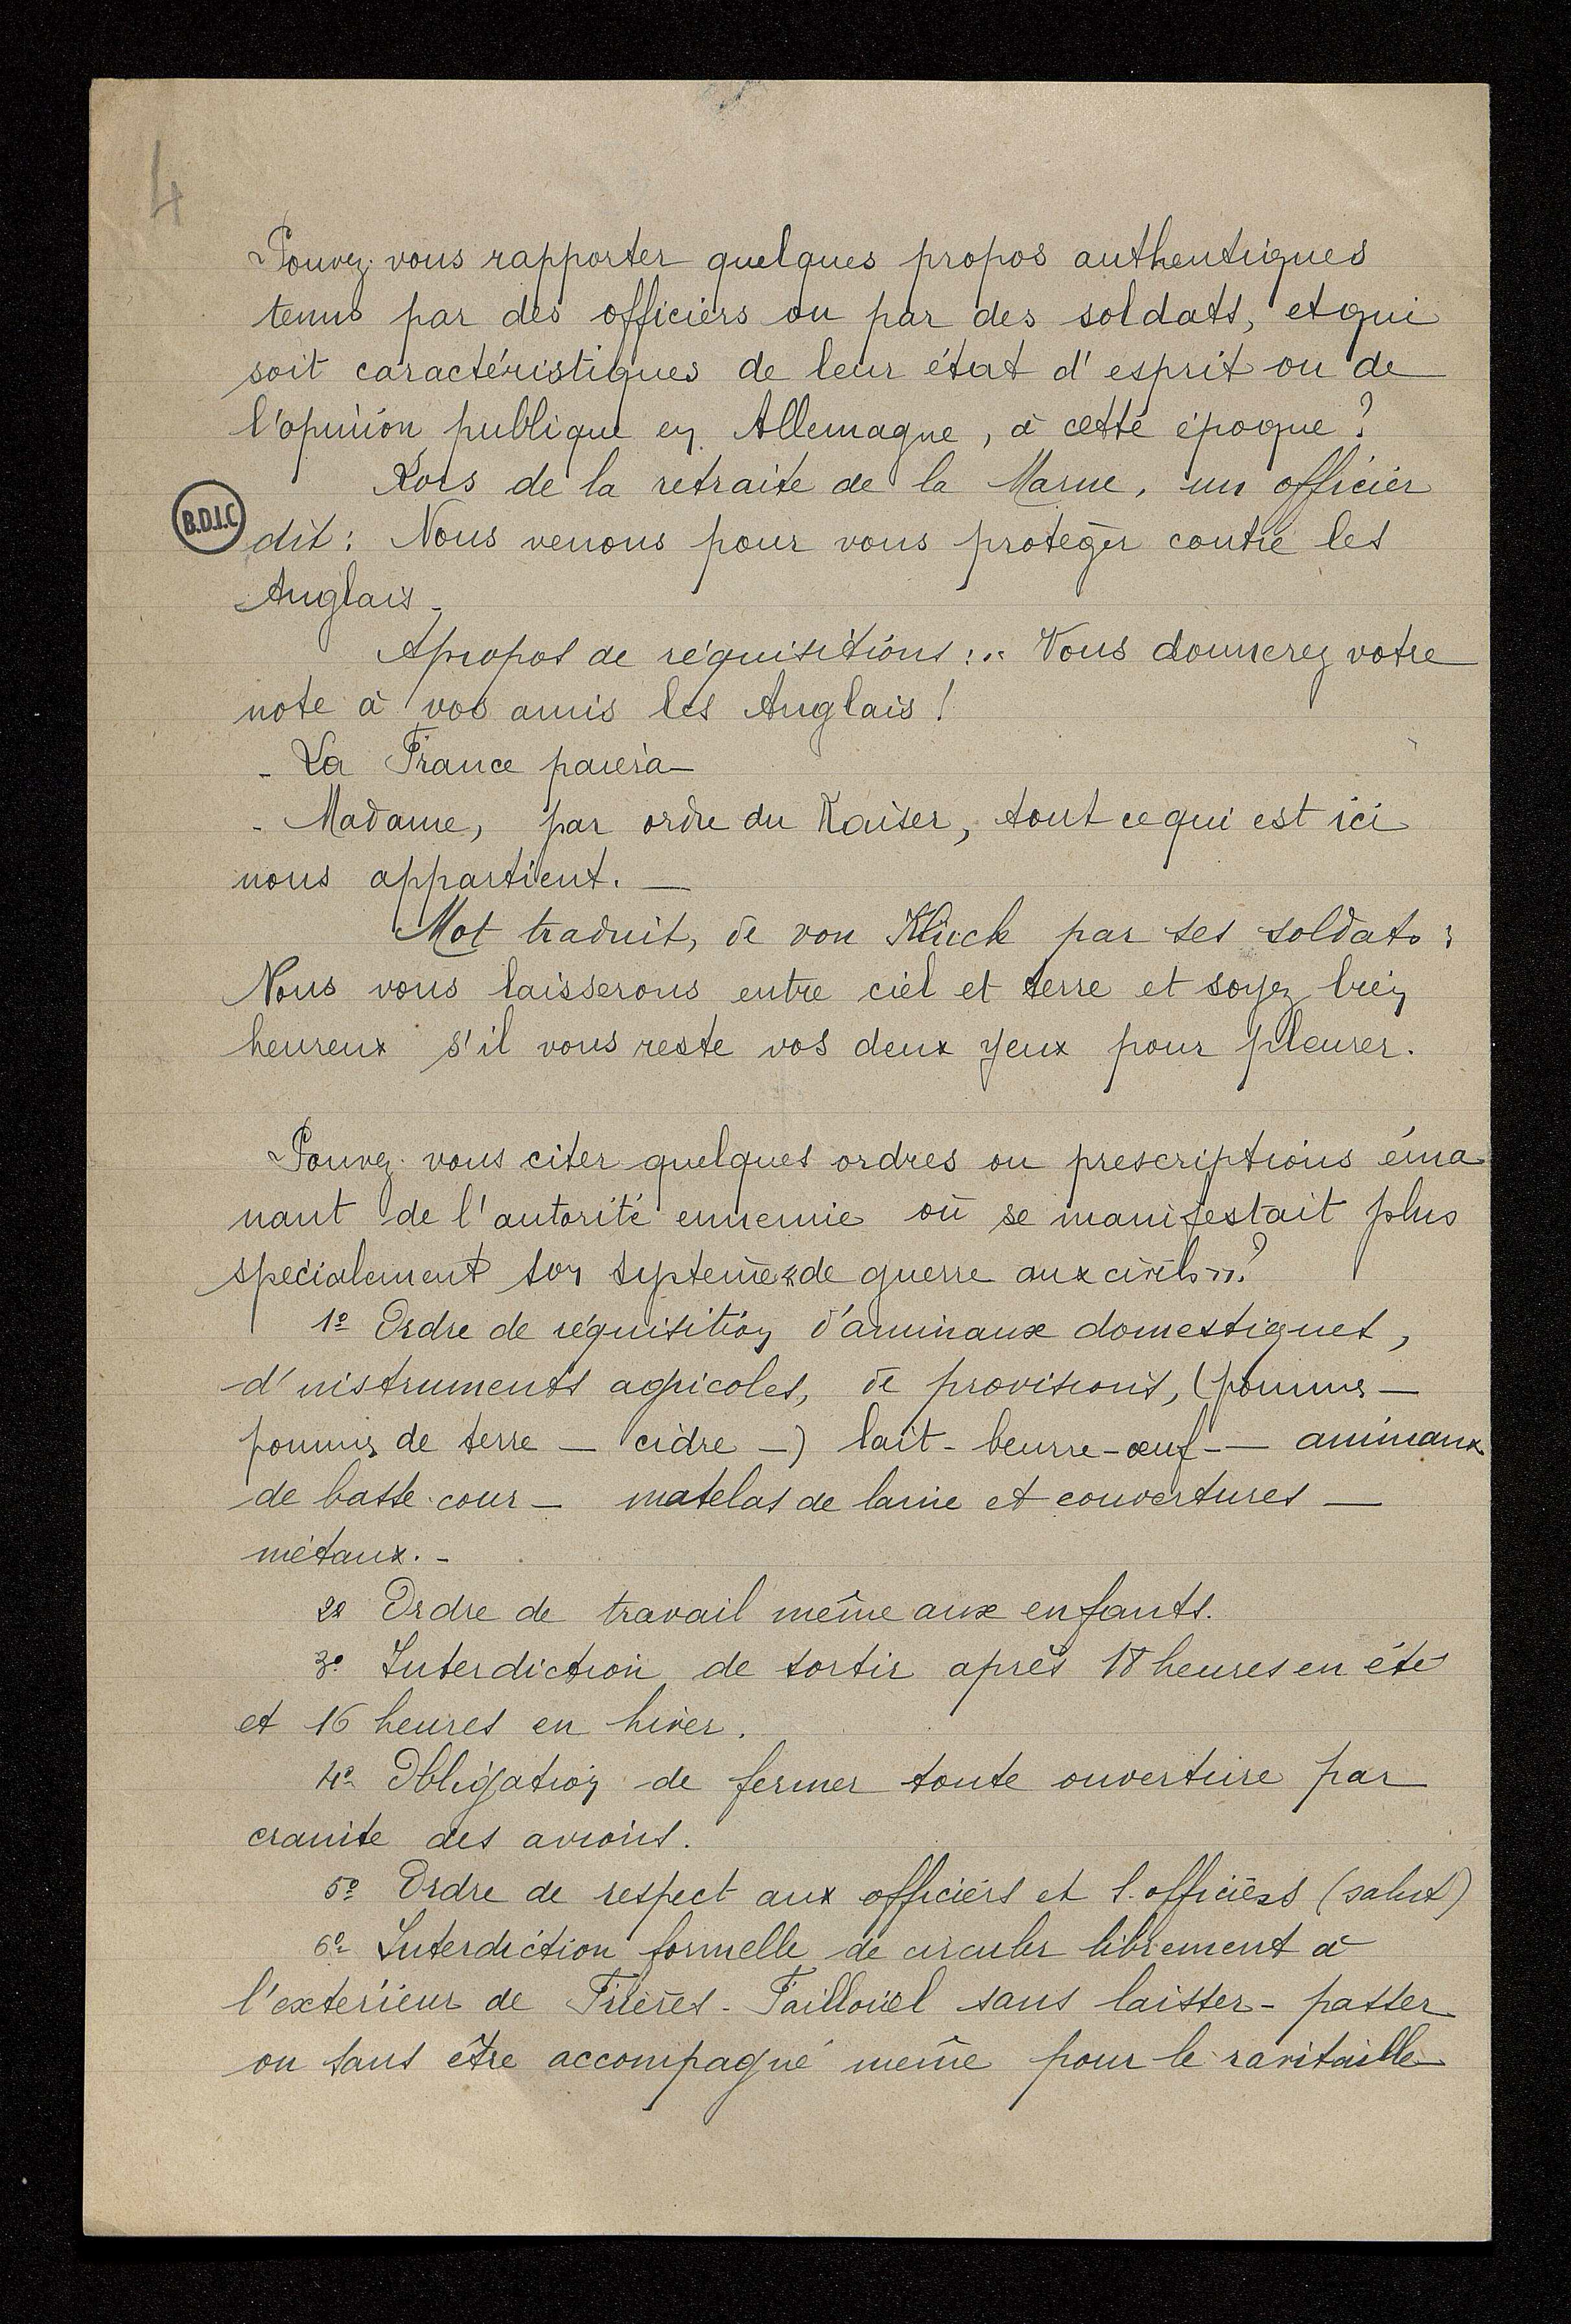 4
Pouvez-vous rapporter quelques propos authentiques
tenus par des officiers ou par des soldats, et qui
soit caractéristiques de leur état d'esprit ou de
l'opinion publique en Allemagne, à cette époque ?
Lors de la retraite de la Marne, un officier
B.D.I.C
dit : Nous venons pour vous protéger contre les
Anglais -
A propos de réquisitions : .. Vous donnerez votre
note à vos amis les Anglais !
- La France paiera -
- Madame, par ordre du Kaiser, tout ce qui est ici
nous appartient. —
Mot traduit, de von Klück par ses soldats :
Nous vous laisserons entre ciel et terre et soyez bien
heureux s'il vous reste vos deux yeux pour pleurer.
Pouvez-vous citer quelques ordres ou prescriptions éma
nant de l'autorité ennemie où se manifestait plus
spécialement son système « de guerre aux civils » ?
1º Ordre de réquisition d'animaux domestiques,
d'instruments agricoles, de provisions, (pommes —
pommes de terre — cidre —) lait - beurre - œuf - — animaux
de basse-cour — matelas de laine et couvertures —
métaux. -
2º Ordre de travail même aux enfants.
3º Interdiction de sortir après 18 heures en été
et 16 heures en hiver.
4º Obligation de fermer toute ouverture par
crainte des avions.
5º Ordre de respect aux officiers et s.officiers (salut)
6º Interdiction formelle de circuler librement à
l'extérieur de Frières-Faillouël sans laisser-passer
ou sans être accompagné même pour le ravitaille